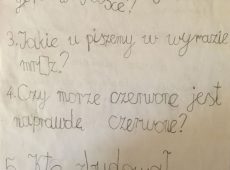 3. Jakie u piszemy w wyrazie
mr□z?
4. Czy morze czerwone jest
naprawdę czerwone?
5. Kto zbudował